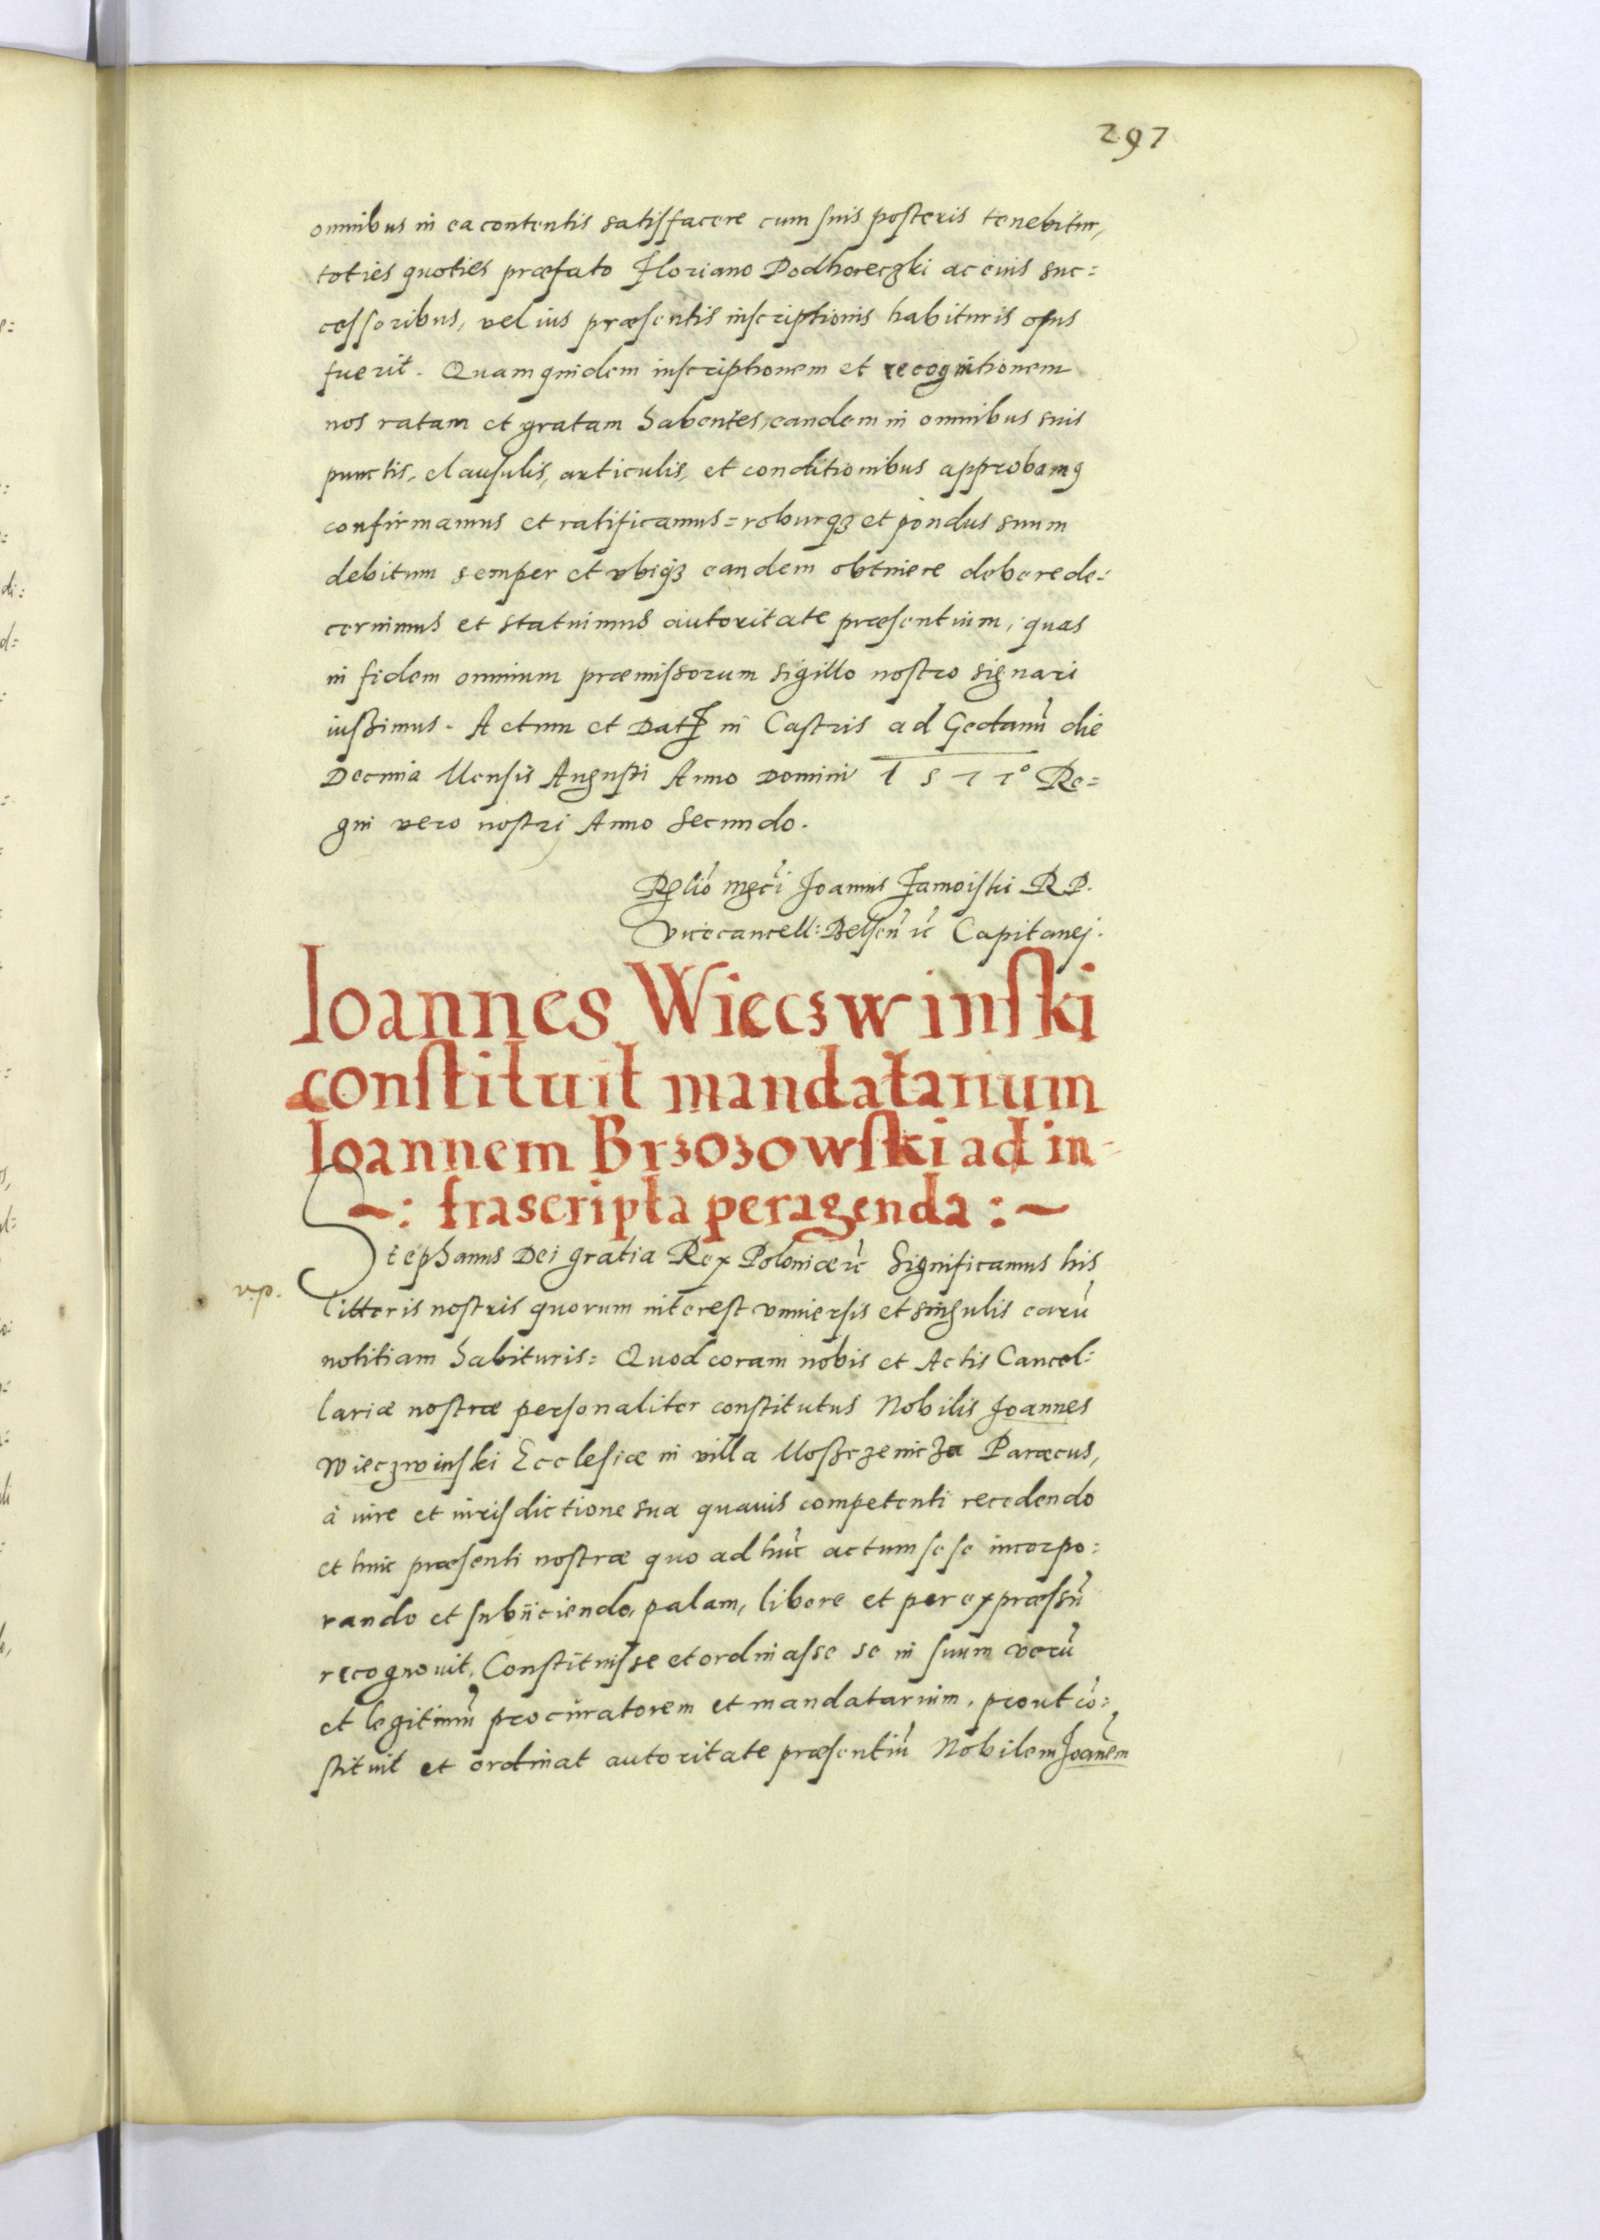 297
omnibus in ea contentis satisfacere cum suis posteris tenebitur,
toties quoties præfato Floriano Podhoreczki ac eius suc=
cessoribus, vel ius præsentis inscriptionis habituris opus
fuerit. Quam quidem inscriptionem et recognitionem
nos ratam et gratam habentes, eandem in omnibus suis
punctis, clausulis, articulis, et conditionibus approbamꝰ
confirmamus et ratificamus= roburqꝫ et pondus suum
debitum semper et vbiqꝫ eandem obtinere debere de=
cernimus et statuimus autoritate præsentium, quas
in fidem omnium præmissorum sigillo nostro signari
iussimus. Actum et Dat in Castris ad Gedanū die
Decima Mensis Augusti Anno Domini 1577° Re=
gni vero nostri Anno Secundo.
Relio mgci Joannis Zamoiski R P.
vicecancell: Belsen ꝛc Capitanej.
Ioannes Wieczwinski
constituit mandatarium
Ioannem Brzozowski ad in-
~: frascripta peragenda :~
Stephanus Dei gratia Rex Poloniæ ꝛc Significamus his
v.p.
litteris nostris quorum interest vniuersis et singulis earū
notitiam habituris= Quod coram nobis et Actis Cancel=
lariæ nostræ personaliter constitutus Nobilis Joannes
Wieczwinski Ecclesiæ in villa Moszczenicza Paræcus,
à iure et iurisdictione sua quauis competenti recedendo
et huic præsenti nostræ quo ad hūc actum sese incorpo=
rando et subijciendo, palam, libere et per expræssū
recognouit, Constituisse et ordinasse se in suum verū
et legitimū procuratorem et mandatarium, prout cō=
stituit et ordinat autoritate præsentiū Nobilem Joañem